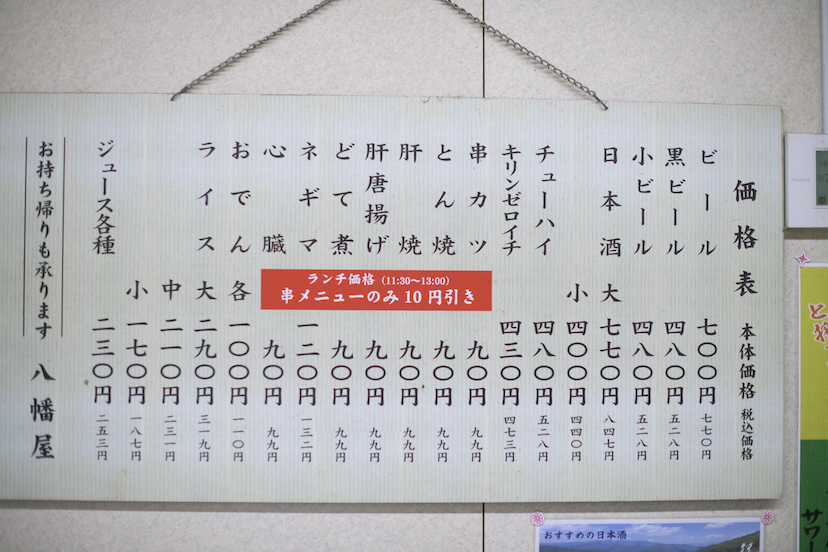 価格表 本体価格 税込価格
ビール 七〇〇円 七七〇円
黒ビール 四八〇円 五二八円
小ビール 四八〇円 五二八円
日本酒 大 七七〇円 八四七円
小 四〇〇円 四四〇円
チューハイ 四八〇円 五二八円
キリンゼロイチ 四三〇円 四七三円
串カツ 九〇円 九九円
とん焼 九〇円 九九円
肝焼 九〇円 九九円
肝唐揚げ 九〇円 九九円
どて煮 九〇円 九九円
ネギマ 一二〇円 一三二円
心臓 九〇円 九九円
おでん 各 一〇〇円 一一〇円
ライス 大 二九〇円 三一九円
中 二一〇円 二三一円
小 一七〇円 一八七円
ジュース各種 二三〇円 二五三円
お持ち帰りも承ります 八幡屋
ランチ価格(11:30〜13:00)
串メニューのみ10円引き
おすすめの日本酒
サワー